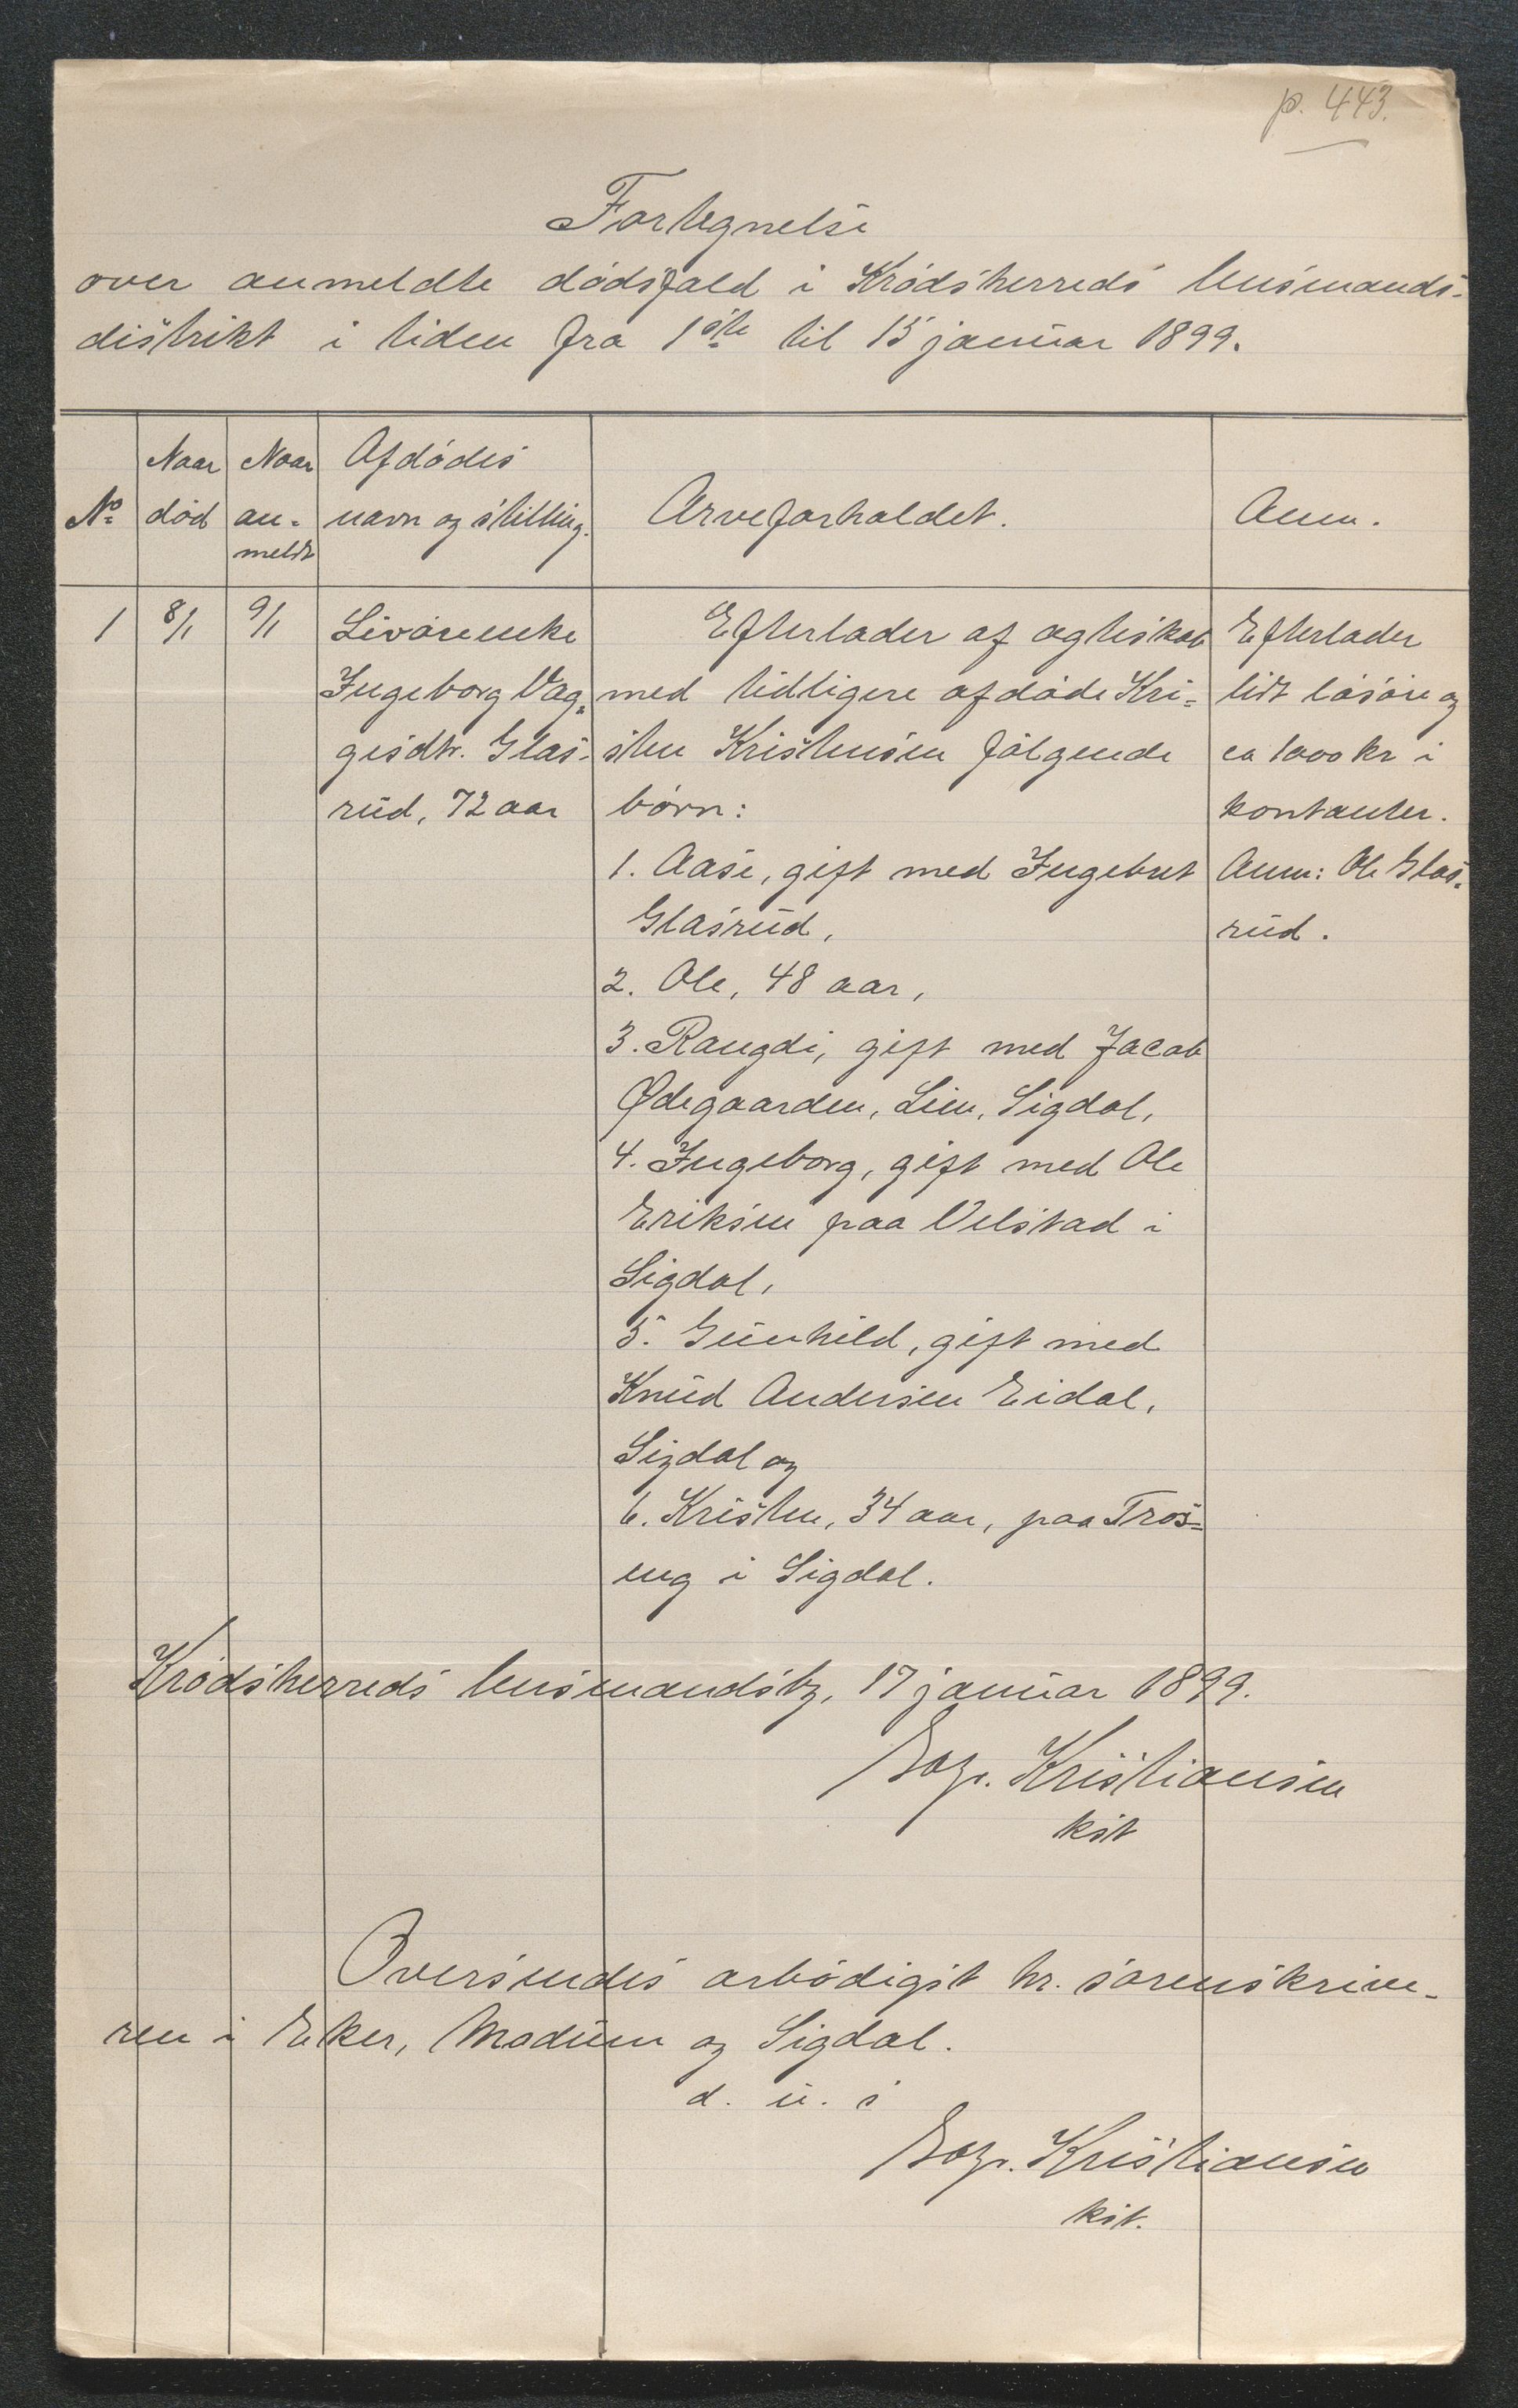 p. 443.
Fortegnelse
over anmeldte dødsfald i Krødsherreds lensmands-
distrikt i tiden fra 1ste til 15 januar 1899.
No
Naar
død
Naar
an-
meldt
Afdødes
navn og stilling.
Arveforholdet.
Anm.
1
8/1
9/1
Livøreenke
Ingeborg Vag-
gesdtr. Glas-
rud, 72 aar
Efterlader af ægteskab
med tidligere afdøde Kri-
sten Kristensen følgende
børn:
1. Aase, gift med Ingebret
Glasrud,
2. Ole, 48 aar,
3. Rangdi, gift med Jacob
Ødegaarden, Lien, Sigdal,
4. Ingeborg, gift med Ole
Eriksen paa Velstad i
Sigdal,
5. Gunhild, gift med
Knud Andersen Eidal,
Sigdal og
6. Kristen, 34 aar, paa Tros-
eng i Sigdal.
Efterlader
lidt løsøre og
ca 1000 kr i
kontanter.
Anm: Ole Glas-
rud.
Krødsherreds lensmandsbg, 17 januar 1899.
Kristiansen
kst
Oversendes ærbødigst hr. sorenskrive-
ren i Eker, Modum og Sigdal.
d. u. s
Kristiansen
kst.